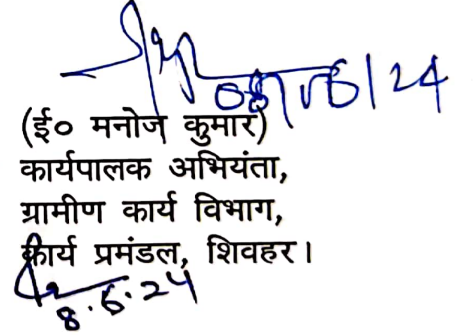 08/06/24
(ई० मनोज कुमार)
कार्यपालक अभियंता,
ग्रामीण कार्य विभाग,
कार्य प्रमंडल, शिवहर।
8.6.24